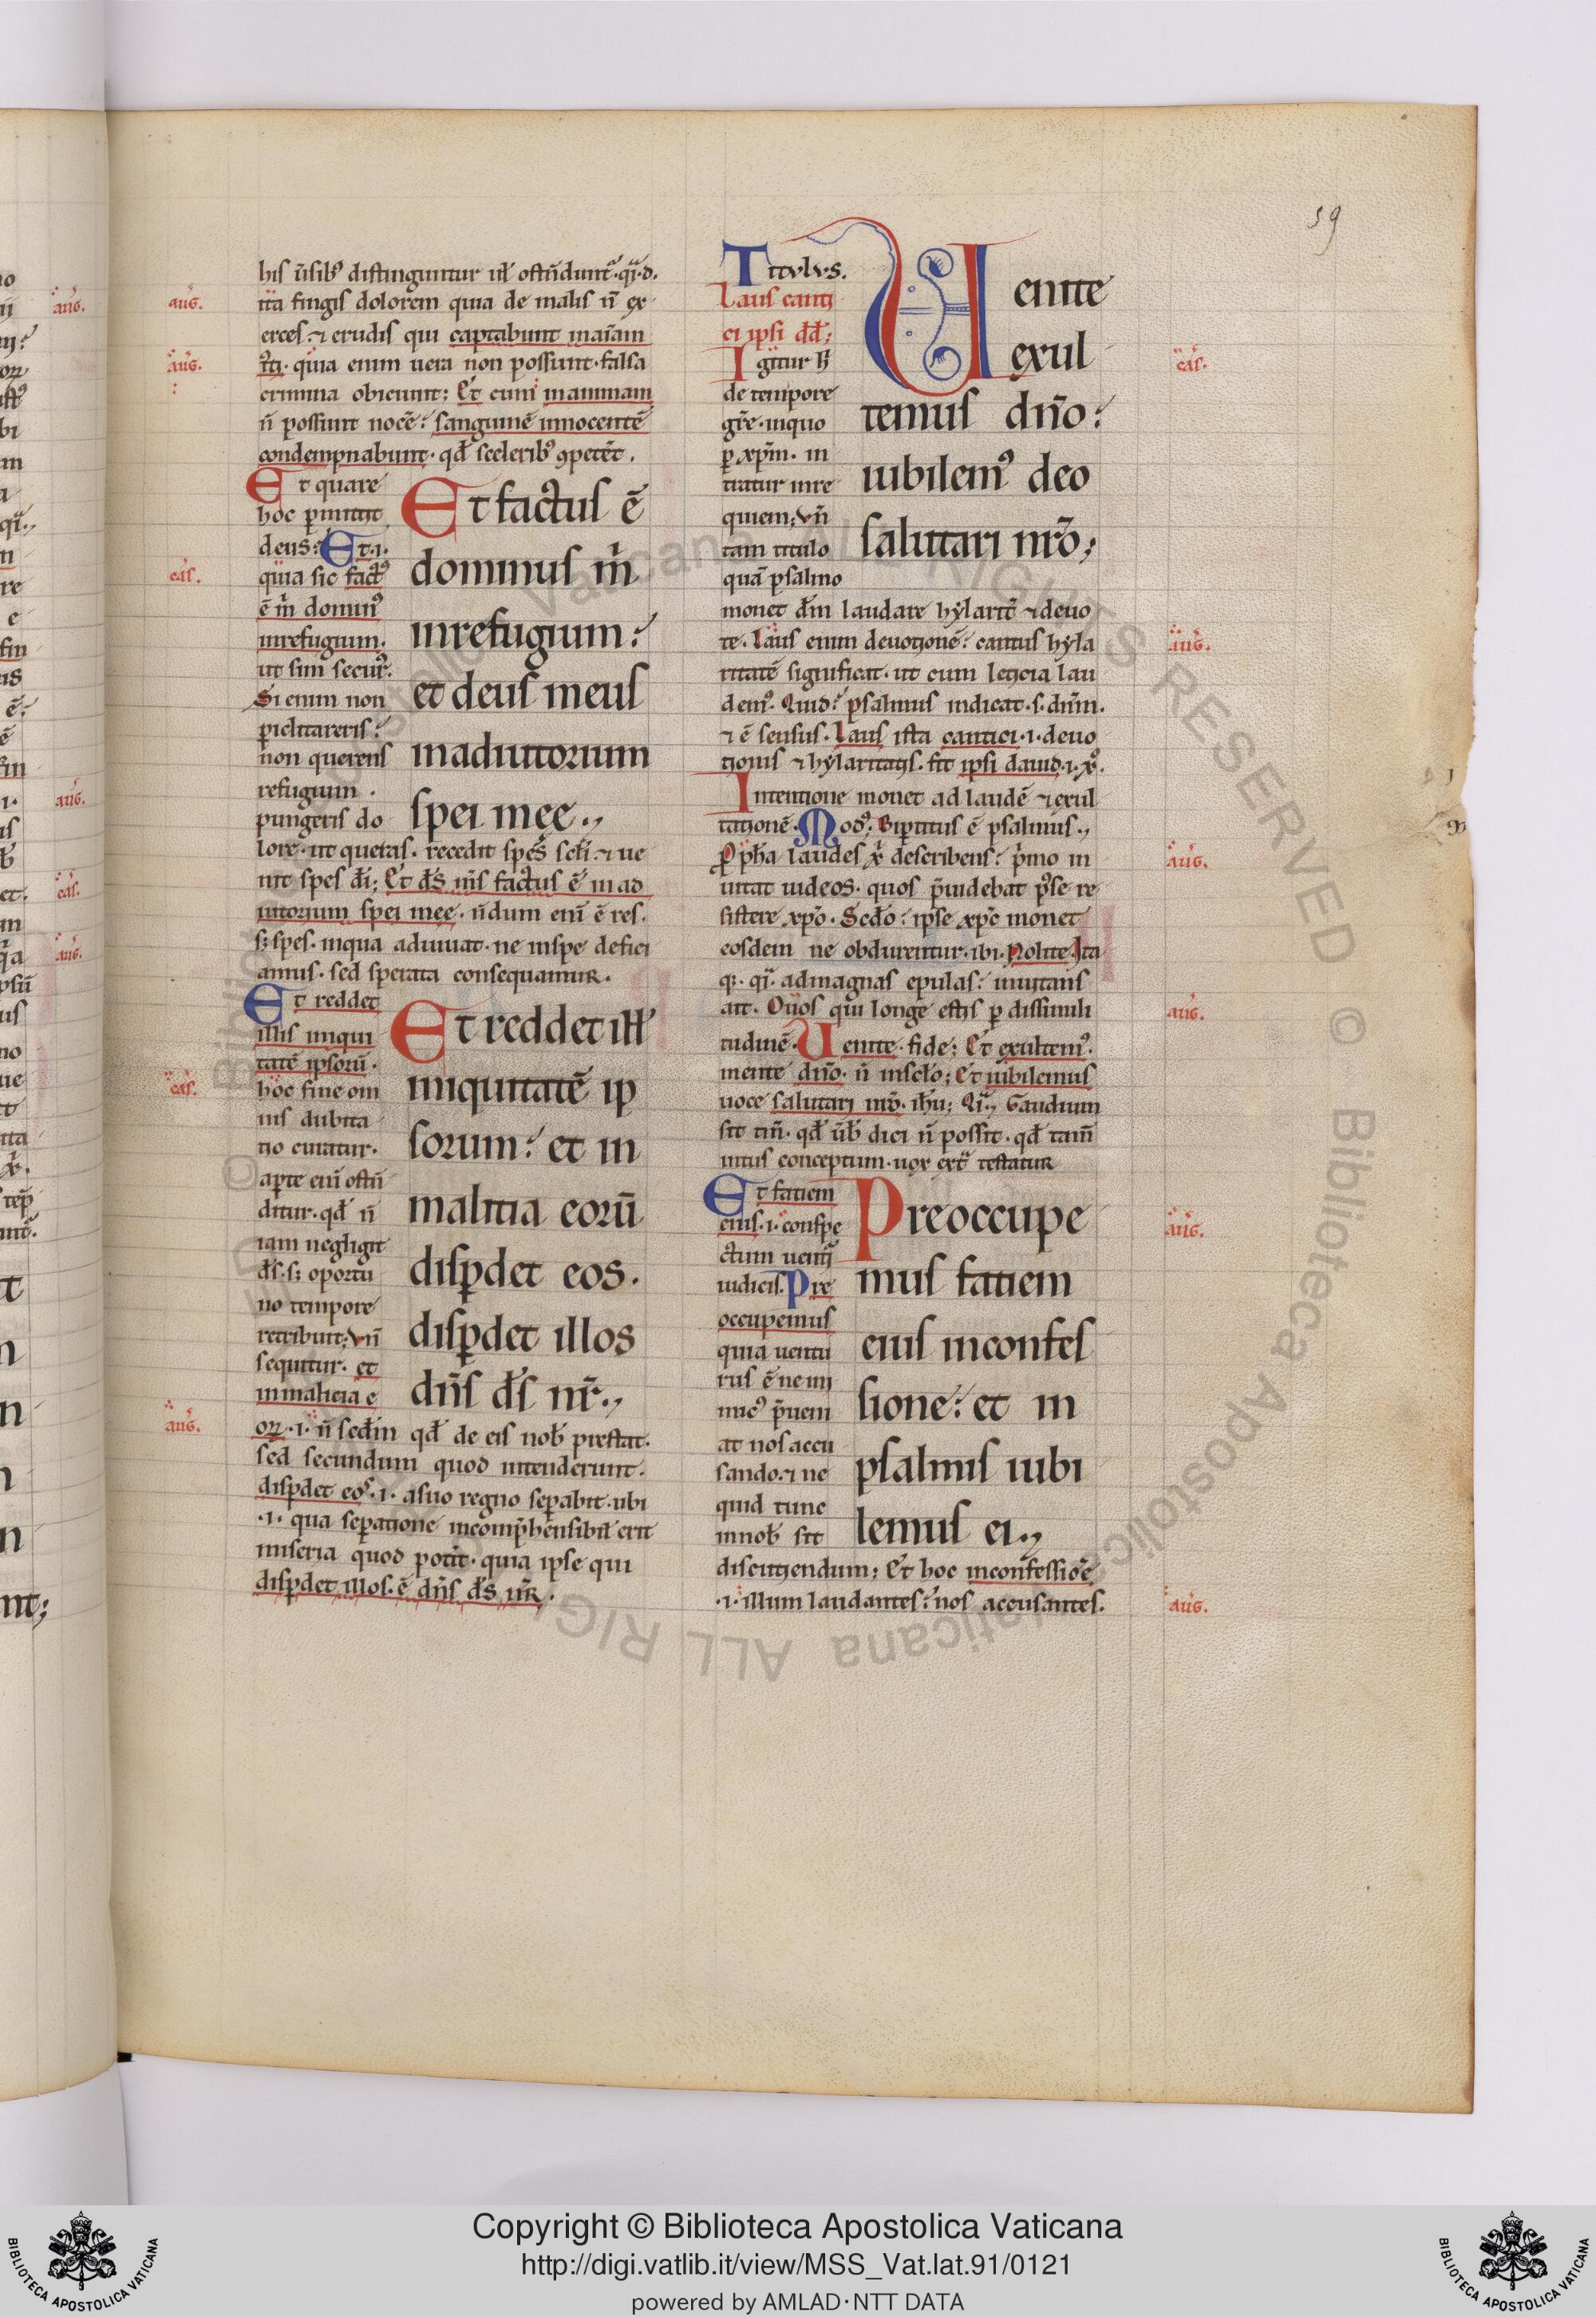 59
his ũsibꝰ distinguntur
ita fingis dolorem quia de malis n̄ ex
erces ⁊ erudis qui captabunt
quia enim uera non possunt falsa
crimina obiciunt; Et cum in animam
n̄ possunt nocē? sanguinē innocentē
condempnabunt. qđ sceleribꝰ ꝯpetēt.
Et quare
hoc
deus? Et .i.
quia sic factꝰ
ē m̄ dominꝰ
in refugium.
ut sim secur᷑.
Si enim non
piclitareris?
non querens
refugium.
pungeris do
lore. ut queras.
nit spes đi; Et đs m̄s factus ē in ad
iutorium spei mee.
s; spes. in qua adiuuat. ne in spe defici
amus. sed sperata consequamur.
Et factus ē
dominus m̄
in refugium?
et deus meus
in adiutorium
spei mee.,
Et reddet
illis iniqui
tatē ipsorū.
hoc fine om
nis dubita
tio curatur.
aꝑte enī ostn̄
ditur. qđ n̄
iam negligit
đs. s; oportu
no tempore
retribuit; Vn̄
sequitur. et
in malicia e
oꝝ .i. n̄ sedm̄ qđ de eis nob̄ prestat.
sed secundum quod intenderunt.
disꝑdet eoꝰ .i. a suo regno seꝑabit. ubi
.i. qua seꝑatione incomp̄hensibil̄ erit
miseria quod potit. quia ipse qui
disꝑdet illos. ē dn̄s đs nr̄.
Et reddet ill̄
iniquitatē ip
sorum? et in
malitia eorū
disꝑdet eos.
disꝑdet illos
dn̄s đs nr̄.,
Titvlvs.
Laus canti
ci ipsi dđ;
Igitur
de tempore
gr̄e. in quo
ꝑ xp̄m. in
tratur in re
quiem; vn̄
tam titulo
quā psalmo
monet dm̄ laudare hylarit̄ ⁊ deuo
te. Laus enim deuotionē? cantus hyla
ritatē significat. ut cum leticia lau
demꝰ. Quid? psalmus indicat. s. dn̄m.
⁊ ē sensus. Laus ista cantici .i. deuo
tionis ⁊ hylaritatis. fit ipsi dauid .i. xꝰ.
Intentione monet ad laudē ⁊ exul
tationē. Modꝰ; Bipertitus ē psalmus.,
Ppha laudes describens? p̄mo in
uitat iudeos. quos p̄uidebat
sistere xp̄o. Sedo? ipse xp̄c monet
eosdem ne obdurentur. ibi. Nolite. Ita
q; qi̇. ad magnas epulas? inuitans
ait. O uos qui longe estis ꝑ dissimili
tudinē. Uenite. fide; Et exultemꝰ.
mente dn̄o. n̄ in sc̄lo; Et iubilemus
uoce salutari nr̄o. ih̄u; Gaudium
sit tm̄. qđ ub̄ dici n̄ possit. qđ tam̄
intus conceptum. uox testatur
Uenite
exul
temus dn̄o?
iubilemꝰ deo
salutari nr̄o;
Et fatiem
eius .i. conspe
ctum
iudicis. Pre
occupemus
quia uentu
rus ē ne ini
micꝰ p̄ueni
at nos accu
sando. ⁊ ne
quid tunc
in nob̄ sit
discutiendum; Et hoc in confessiōe
.i. illum laudantes? nos accusantes.
Preoccupe
mus fatiem
eius in confes
sione? et in
psalmis iubi
lemus ei.,
auḡ.
auḡ.
cas̄.
cas̄.
auḡ.
cas̄.
auḡ.
auḡ.
auḡ.
auḡ.
auḡ.
Copyright © Biblioteca Apostolica Vaticana
http://digi.vatlib.it/view/MSS_Vat.lat.91/0121
powered by AMLAD·NTT DATA
BIBLIOTECA APOSTOLICA VATICANA
BIBLIOTECA APOSTOLICA VATICANA